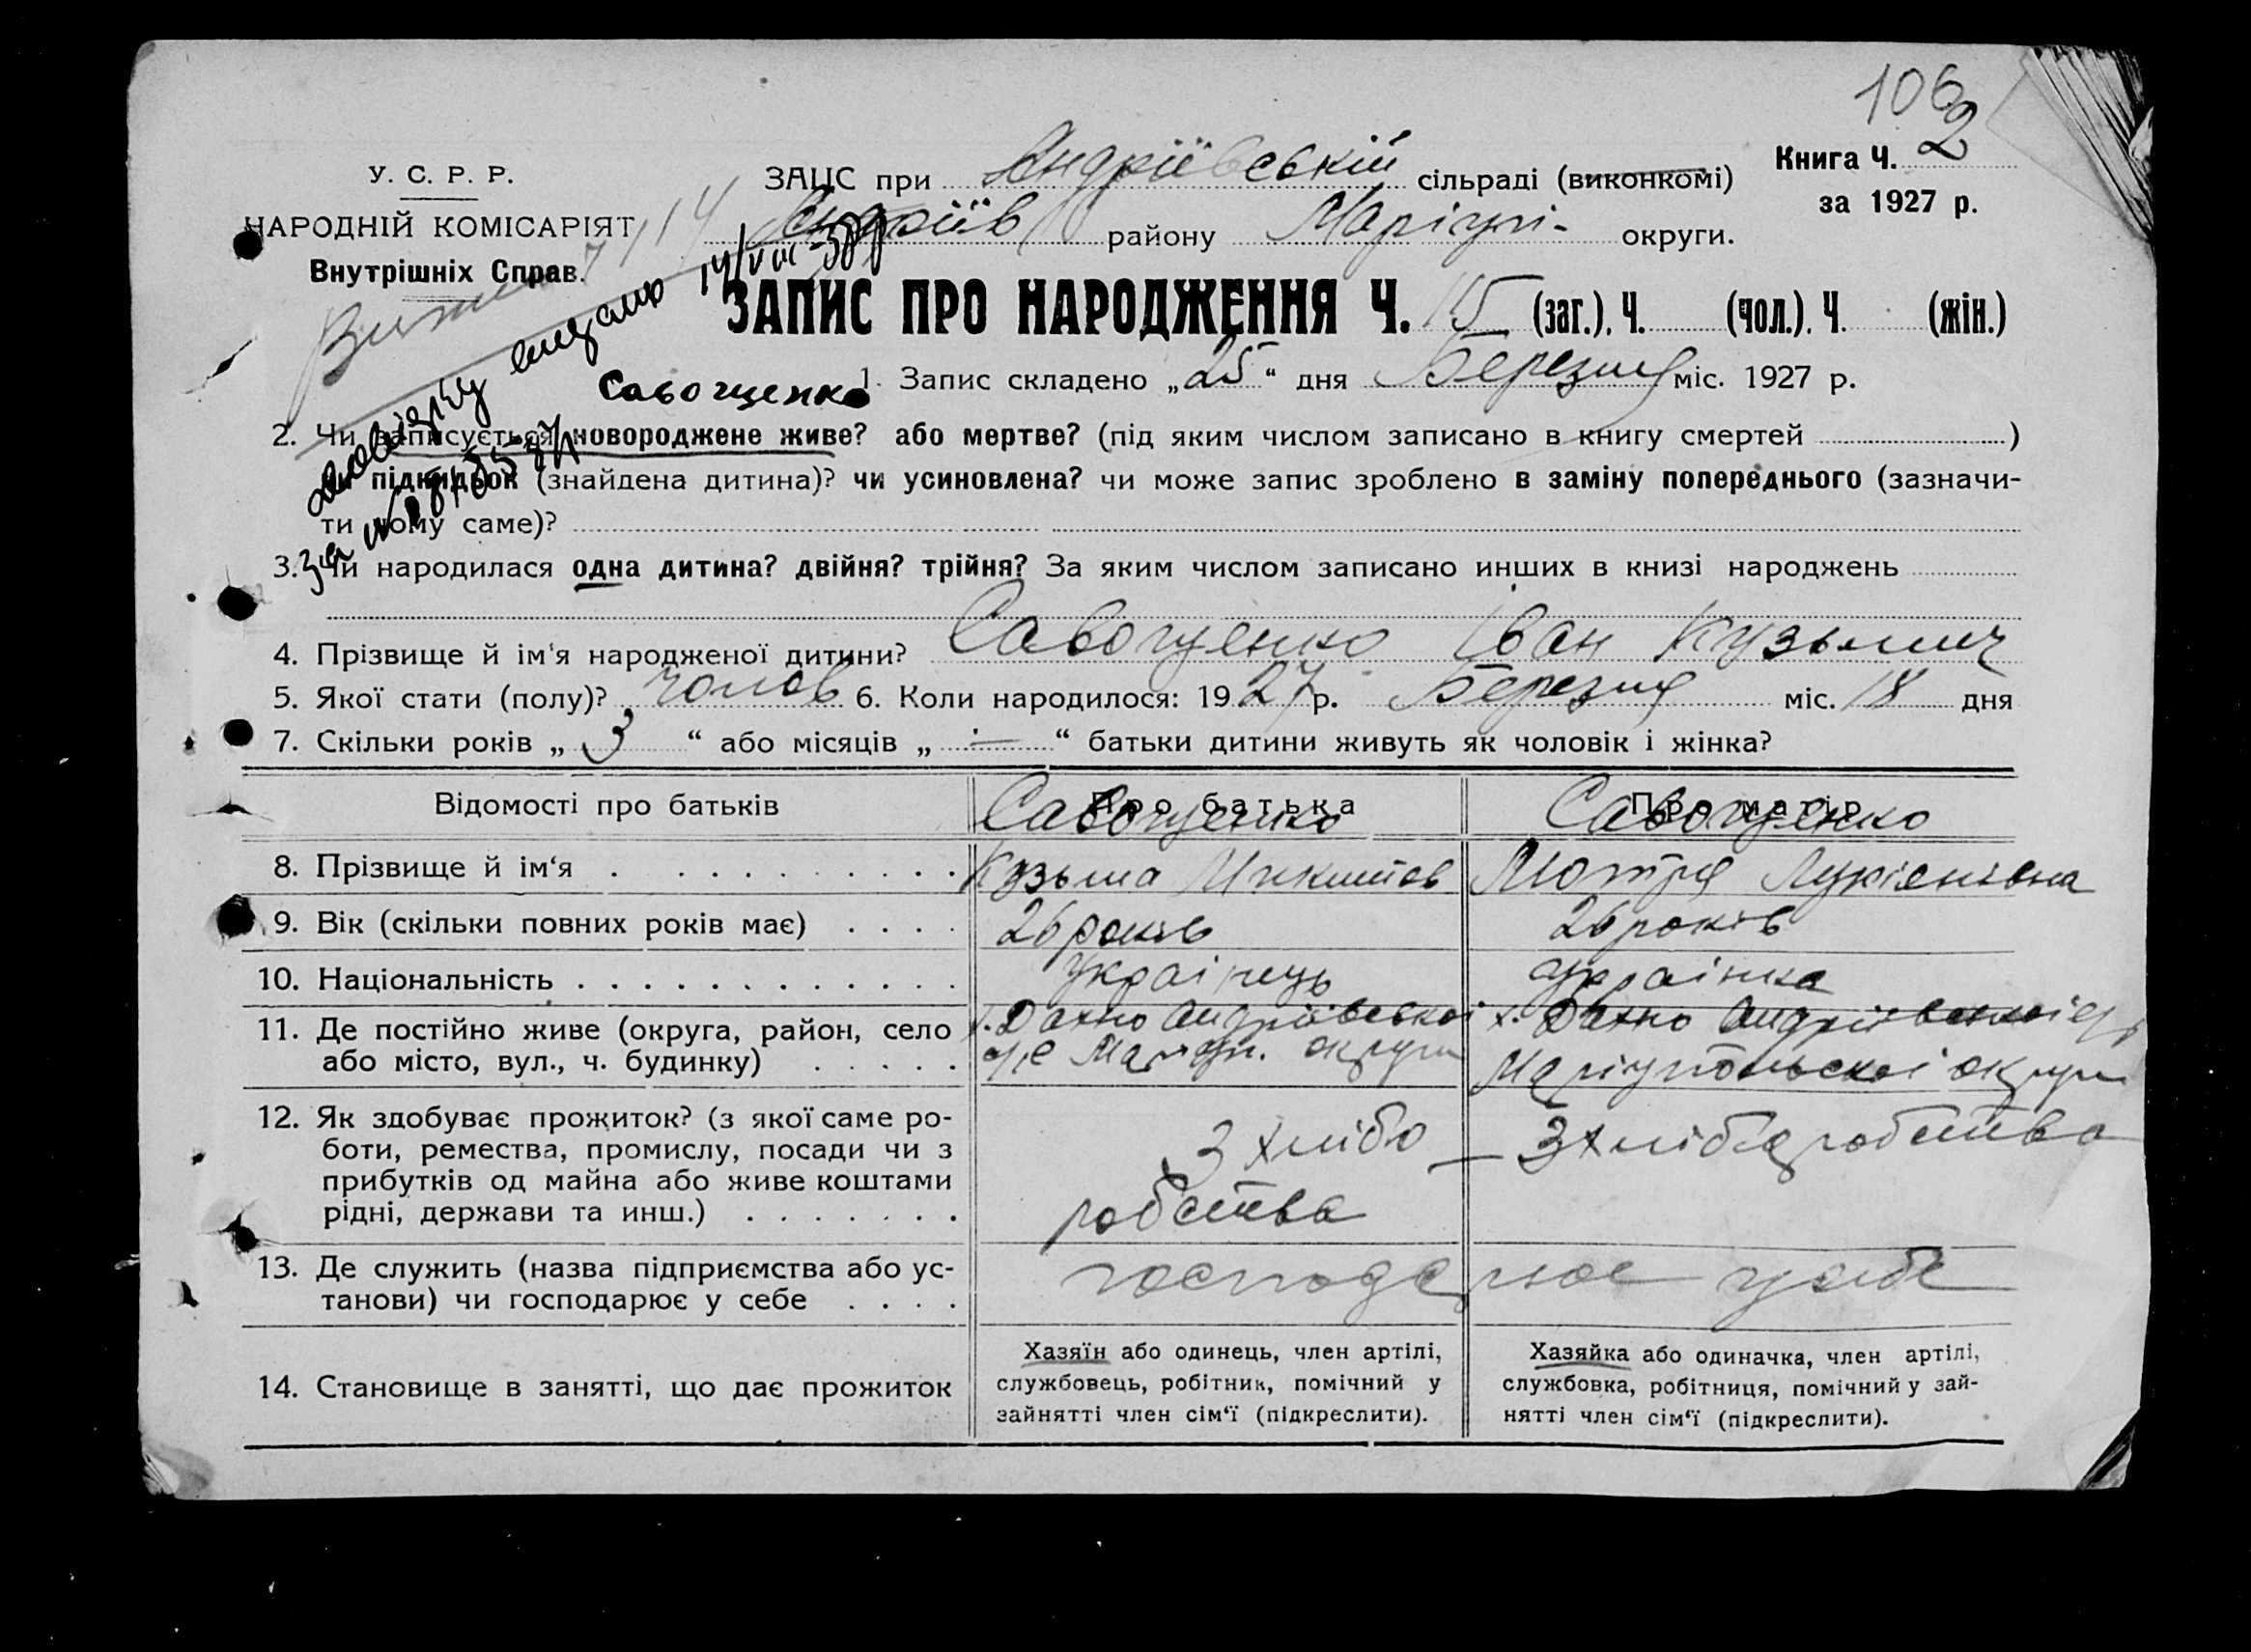 106
У. С. Р. Р.
НАРОДНІЙ КОМІСАРІЯТ
Внутрішніх Справ.
ЗАЦС при Андріївській сільраді (виконкомі)
Андріїв району Маріупі- округи.
Книга Ч. 2
за 1927 р.
ЗАПИС ПРО НАРОДЖЕННЯ Ч. 15 (заг.). Ч. (чол.). Ч. (жін.)
Савощенко
1. Запис складено „25“ дня Березня міс. 1927 р.
2. Чи записується новороджене живе? або мертве? (під яким числом записано в книгу смертей )
чи підкидьок (знайдена дитина)? чи усиновлена? чи може запис зроблено в заміну попереднього (зазначи-
ти чому саме)?
3. Чи народилася одна дитина? двійня? трійня? За яким числом записано инших в книзі народжень
4. Прізвище й ім'я народженої дитини? Савощенко Іван Кузьмич
5. Якої стати (полу)? чолов 6. Коли народилося: 1927 р. Березня міс. 18 дня
7. Скільки років „3“ або місяців „—“ батьки дитини живуть як чоловік і жінка?
Відомості про батьків
Про батька
Про матір
8. Прізвище й ім‘я
Савощенко
Кузьма Микитов
Савощенко
Мотря Лук'янівна
9. Вік (скільки повних років має)
26 років
26 років
10. Національність
Українець
Українка
11. Де постійно живе (округа, район, село
або місто, вул., ч. будинку)
х. Дахно Андріївської
с/р Маріуп. округи
х. Дахно Андріївської с/р
Маріупольської округи
12. Як здобуває прожиток? (з якої саме ро-
боти, ремества, промислу, посади чи з
прибутків од майна або живе коштами
рідні, держави та инш.)
З хлібо
робства
— З хліборобства
13. Де служить (назва підприємства або ус-
танови) чи господарює у себе
господарює у себе
14. Становище в занятті, що дає прожиток
Хазяїн або одинець, член артілі,
службовець, робітник, помічний у
зайнятті член сім‘ї (підкреслити).
Хазяйка або одиначка, член артілі,
службовка, робітниця, помічний у зай-
нятті член сім‘ї (підкреслити).